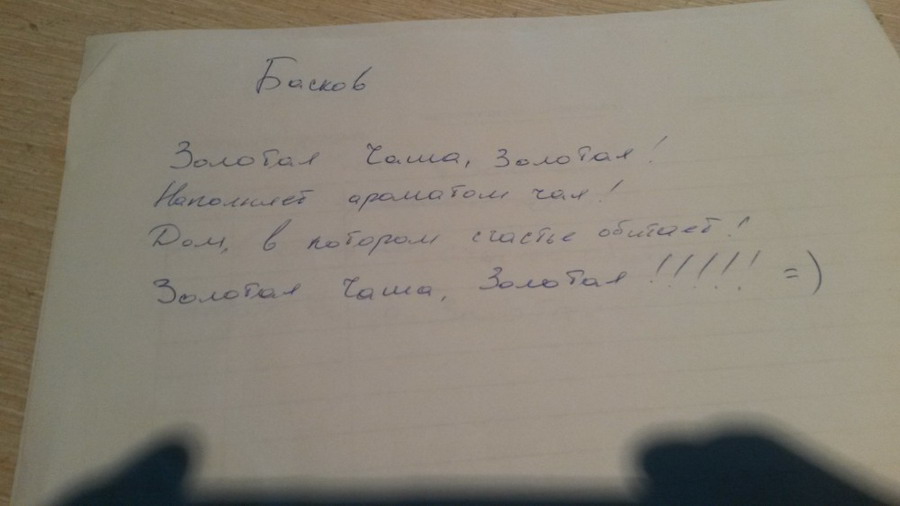 Басков
Золотая Чаша, Золотая!
Наполняет ароматом чая!
Дом, в котором счастье обитает!
Золотая Чаша, Золотая!!!!!! =)